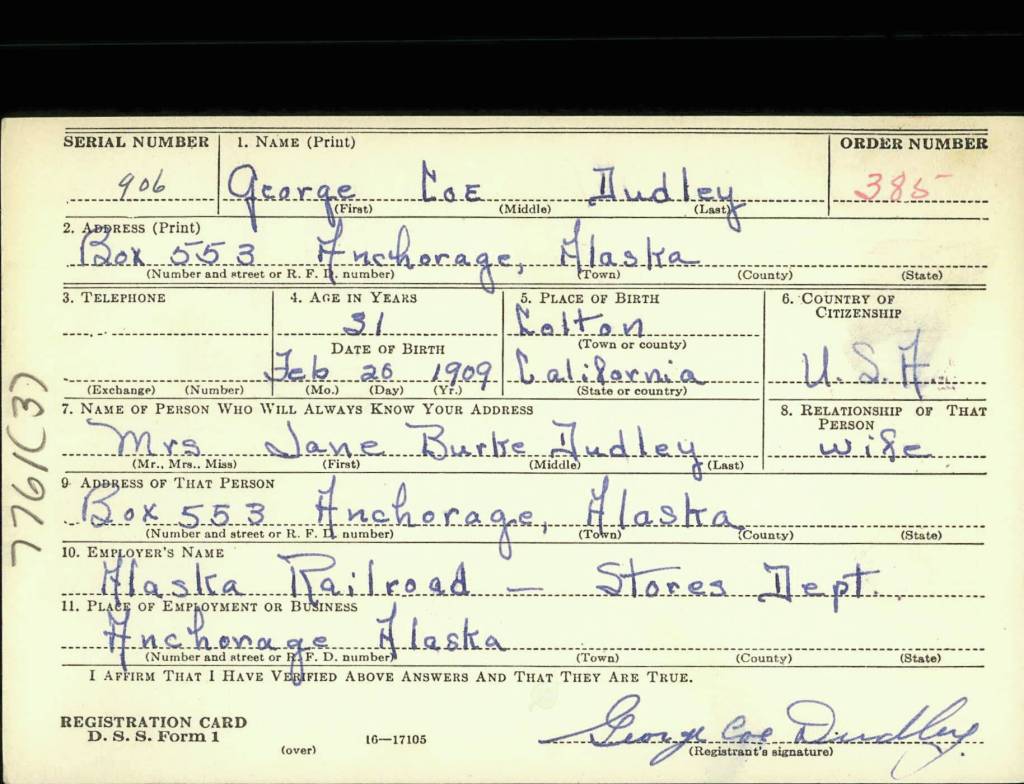 SERIAL NUMBER 1. NAME (Print) ORDER NUMBER
906 George Coe Dudley 385
(First) (Middle) (Last)
2. ADDRESS (Print)
Box 553 Anchorage, Alaska
(Number and street or R. F. D. number) (Town) (County) (State)
3. TELEPHONE 4. AGE IN YEARS 5. PLACE OF BIRTH 6. COUNTRY OF CITIZENSHIP
31 Colton
(Town or county)
DATE OF BIRTH
Feb 26 1909 California U. S. A.
(Exchange) (Number) (Mo.) (Day) (Yr.) (State or country)
7. NAME OF PERSON WHO WILL ALWAYS KNOW YOUR ADDRESS 8. RELATIONSHIP OF THAT PERSON
Mrs Jane Burke Dudley wife
(Mr., Mrs., Miss) (First) (Middle) (Last)
9 ADDRESS OF THAT PERSON
Box 553 Anchorage, Alaska
(Number and street or R. F. D. number) (Town) (County) (State)
10. EMPLOYER'S NAME
Alaska Railroad — Stores Dept.
11. PLACE OF EMPLOYMENT OR BUSINESS
Anchorage Alaska
(Number and street or R. F. D. number) (Town) (County) (State)
I AFFIRM THAT I HAVE VERIFIED ABOVE ANSWERS AND THAT THEY ARE TRUE.
REGISTRATION CARD
D. S. S. Form 1
(over) 16—17105
George Coe Dudley
(Registrant's signature)
7761(3)